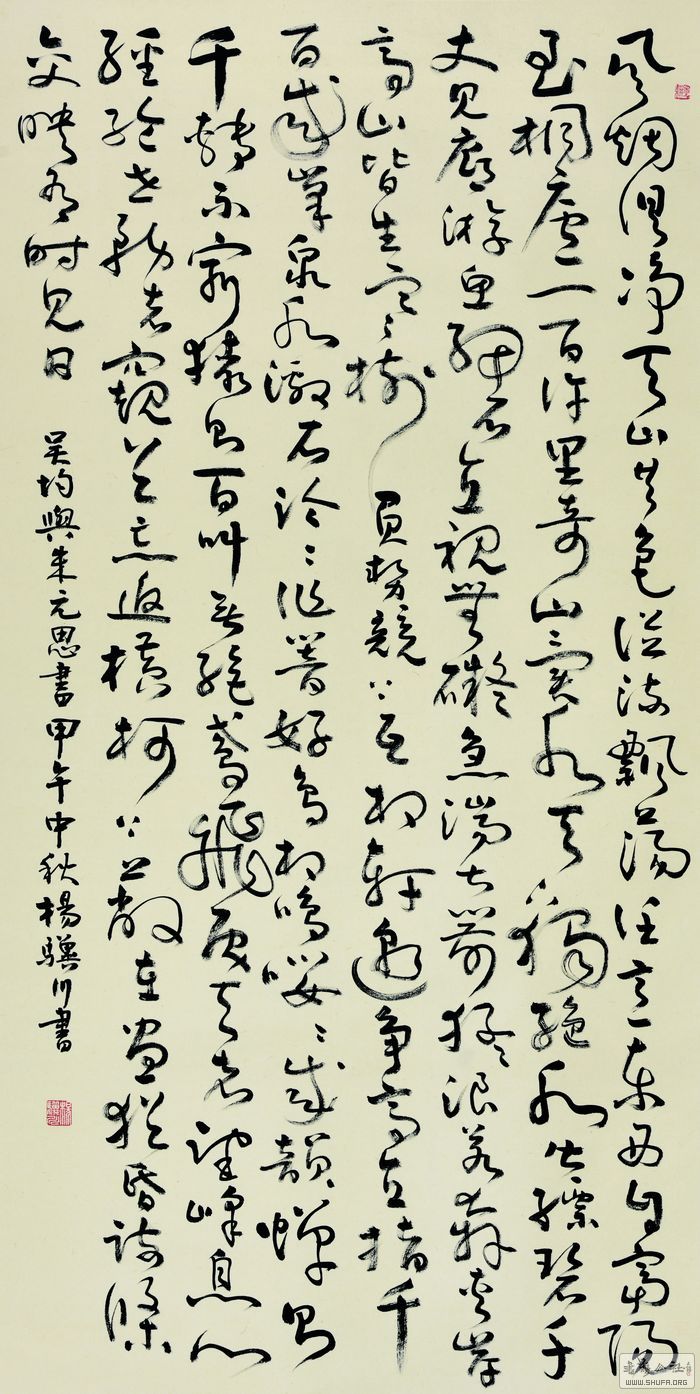 风烟俱净天山共色從流飄蕩任意東西自富陽
至桐廬一百许里奇山異水天下獨絶水皆縹碧千
丈見底游魚細石直視無礙急湍甚箭猛浪若奔夾岸
高山皆生寒樹負勢競上互相軒邈爭高直指千
百成峯泉水激石泠〻作響好鳥相鳴嚶〻成韻蟬則
千轉不窮猿則百叫無絶鳶飛戾天者望峰息心
經綸世務者窺谷忘返橫柯上蔽在晝猶昏疏條
交映有時見日 吴均與朱元思書甲午中秋楊驥川書
WWW.SHUFA.ORG